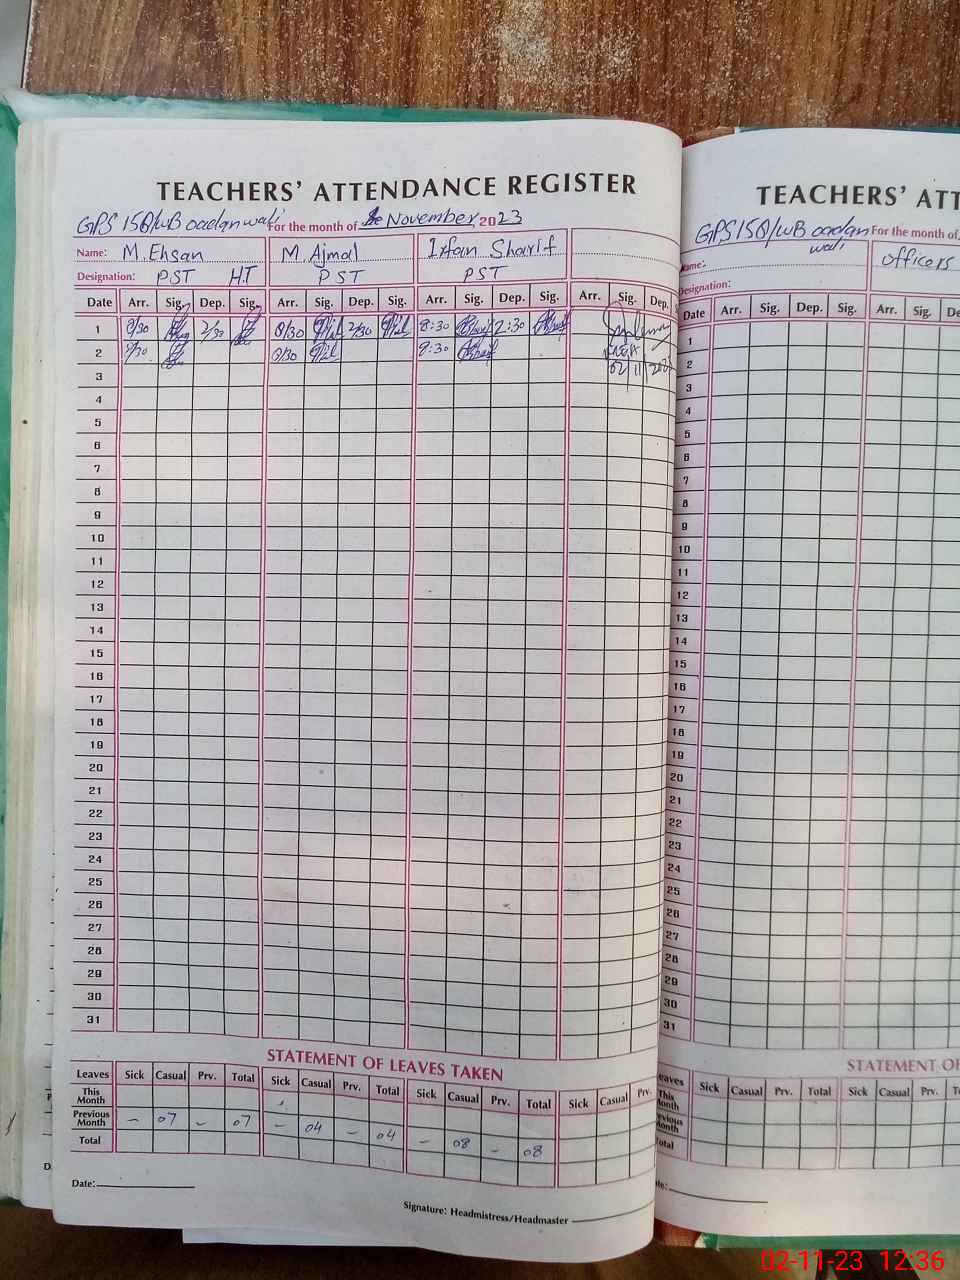 TEACHERS' ATTENDANCE REGISTER
GPS 150/WB For the month of November, 2023
Name: M. Ehsan M. Ajmal Irfan Sharif
Designation: PST H.T PST PST
Date Arr. Sig. Dep. Sig. Arr. Sig. Dep. Sig. Arr. Sig. Dep. Sig. Arr. Sig. Dep.
1 8/30 2/30 8/30 2/30 8:30 2:30
2 8/30 8/30 8:30
02/11/2023
3
4
5
6
7
8
9
10
11
12
13
14
15
16
17
18
19
20
21
22
23
24
25
26
27
28
29
30
31
STATEMENT OF LEAVES TAKEN
Leaves Sick Casual Prv. Total Sick Casual Prv. Total Sick Casual Prv. Total Sick Casual Prv.
This Month
Previous Month - 07 - 07 - 04 - 04 - 08 - 08
Total
Date:
Signature: Headmistress/Headmaster
TEACHERS' ATT
GPS 150/WB For the month of
ame: officers
Designation:
Date Arr. Sig. Dep. Sig. Arr. Sig. De
1
2
3
4
5
6
7
8
9
10
11
12
13
14
15
16
17
18
19
20
21
22
23
24
25
26
27
28
29
30
31
STATEMENT OF
eaves Sick Casual Prv. Total Sick Casual Prv. T
This Month
evious Month
otal
te:
02-11-23 12:36